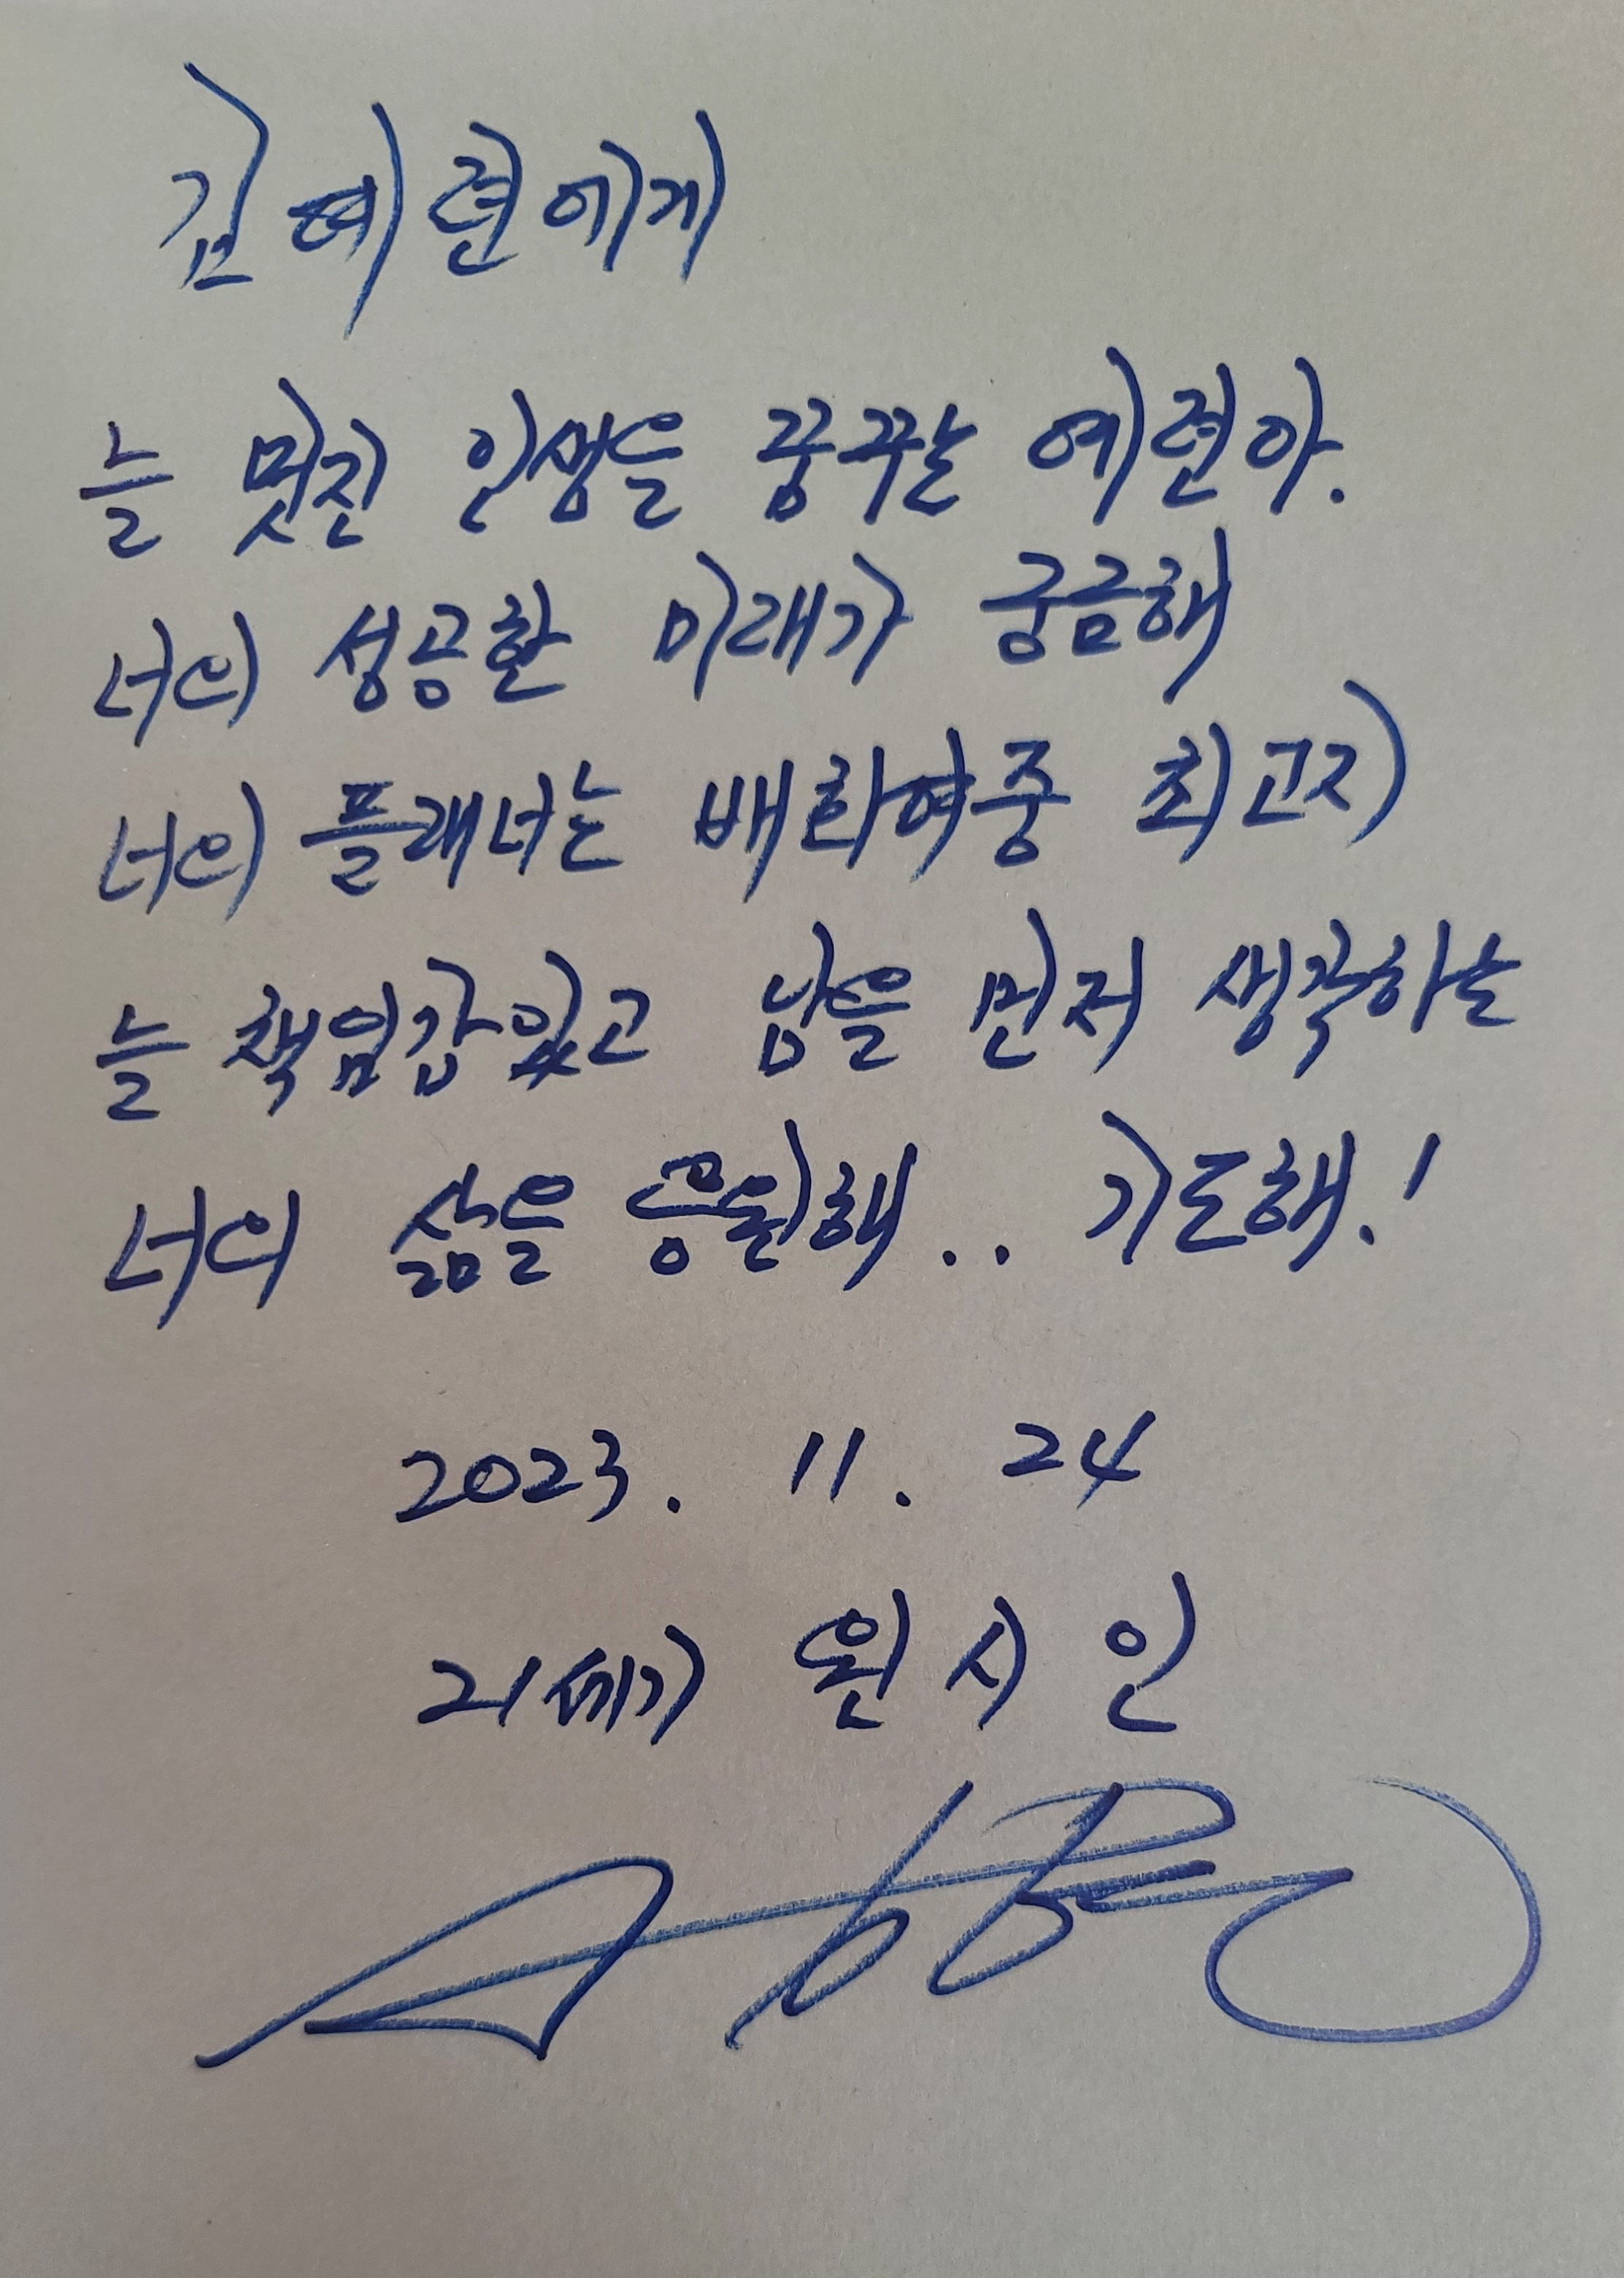 김예련에게
늘 멋진 인생을 꿈꾸는 예련아.
너의 성공한 미래가 궁금해
너의 플래너는 배화여중 최고지
늘 책임감있고 남을 먼저 생각하는
너의 삶을 응원해.. 기도해!
2023. 11. 24
21세기 원시인